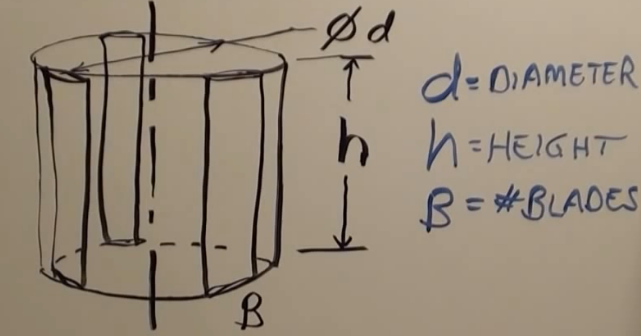 Ø d
h
d = DIAMETER
h = HEIGHT
B = #BLADES
B